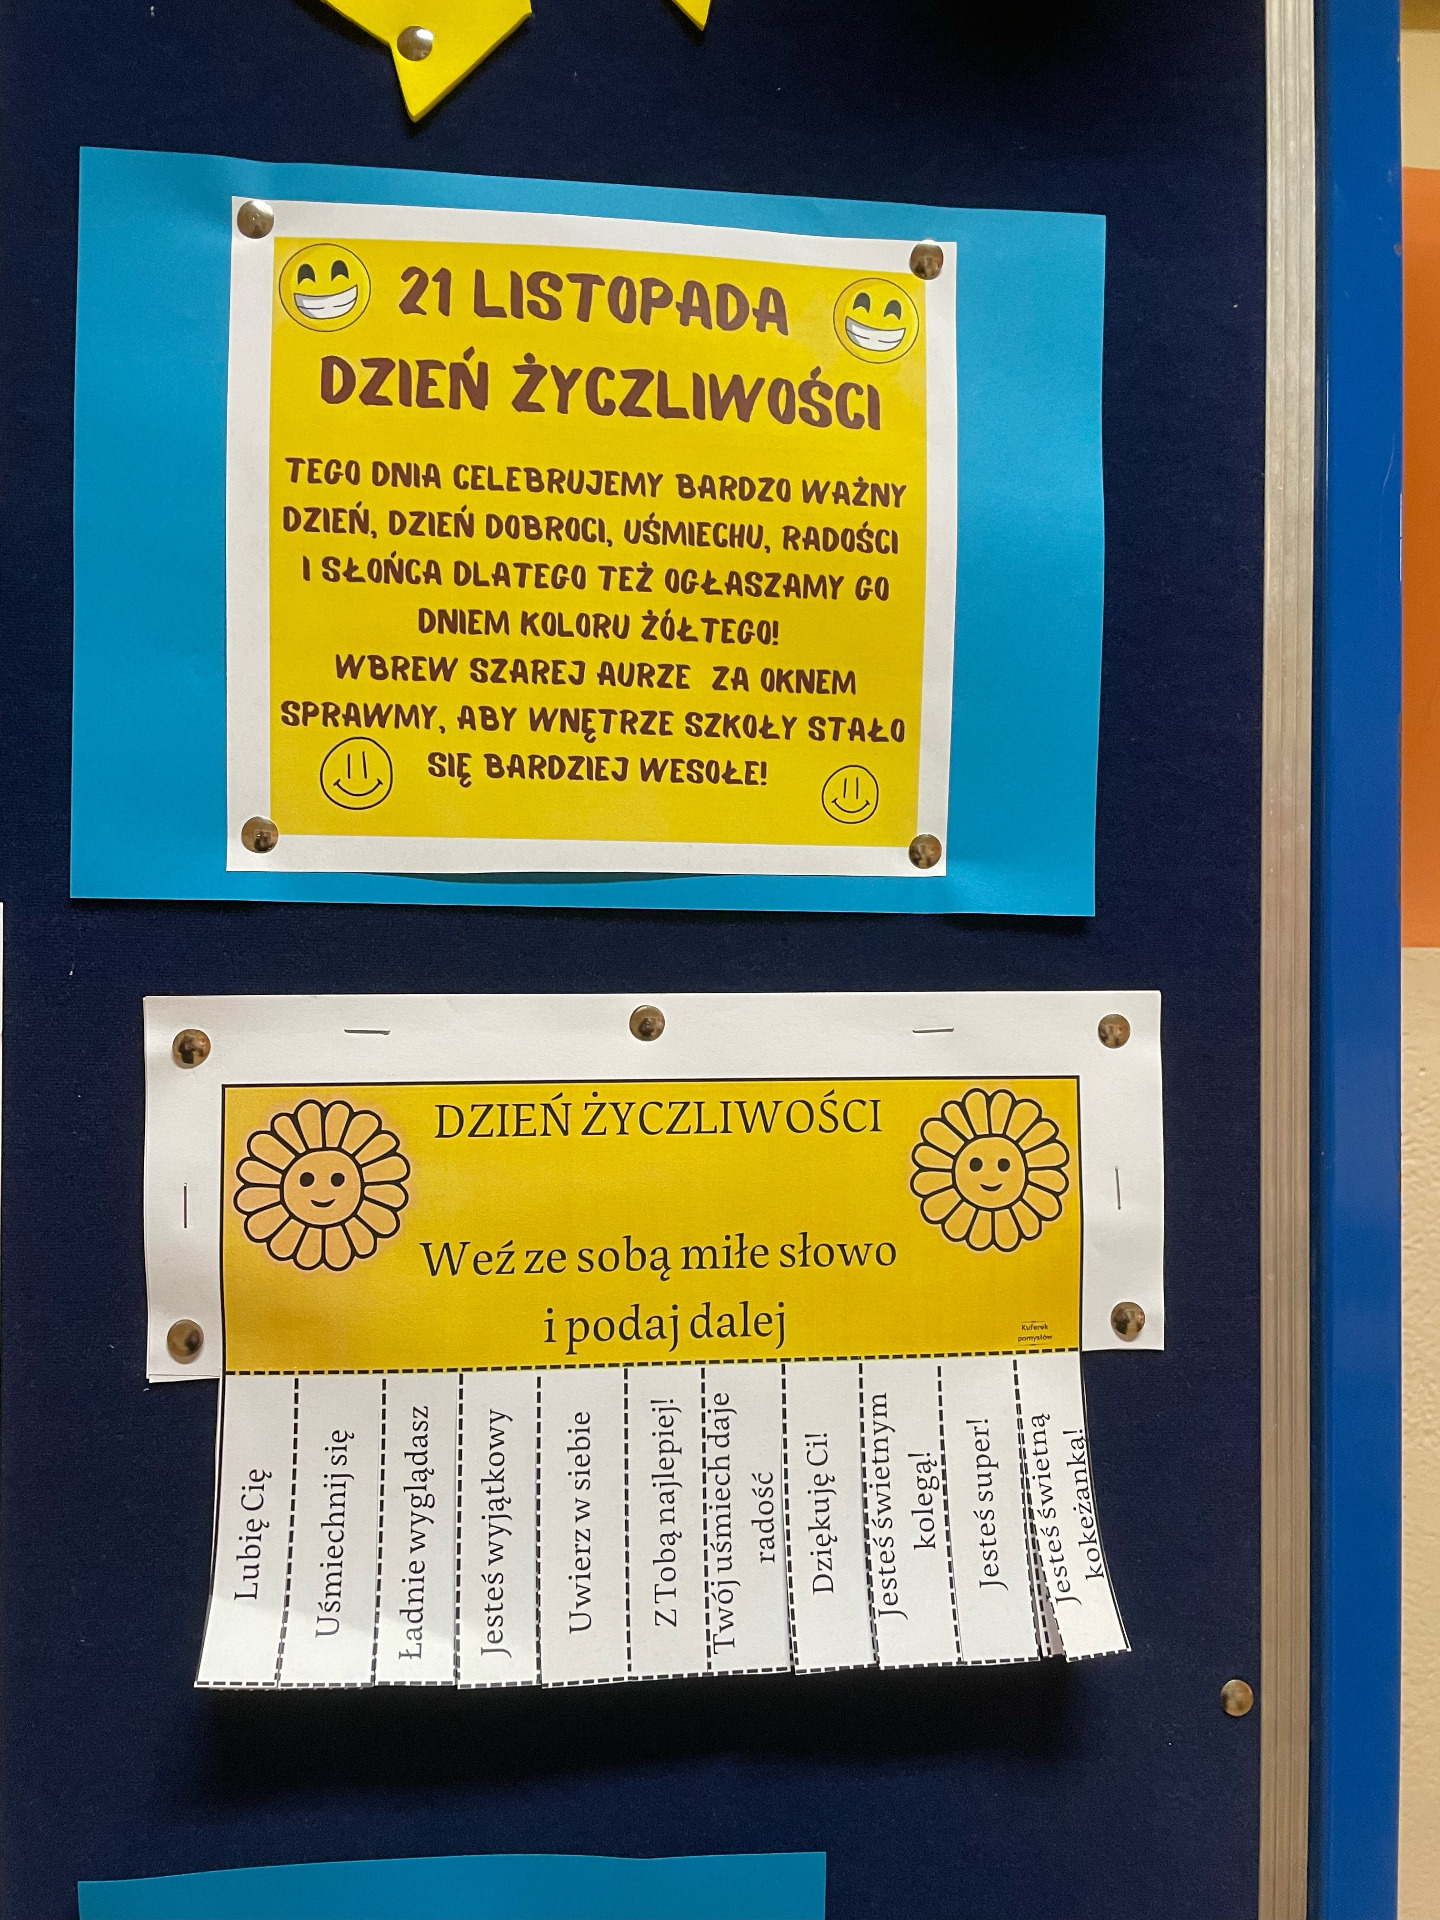 21 LISTOPADA
DZIEŃ ŻYCZLIWOŚCI
TEGO DNIA CELEBRUJEMY BARDZO WAŻNY
DZIEŃ, DZIEŃ DOBROCI, UŚMIECHU, RADOŚCI
I SŁOŃCA DLATEGO TEŻ OGŁASZAMY GO
DNIEM KOLORU ŻÓŁTEGO!
WBREW SZAREJ AURZE ZA OKNEM
SPRAWMY, ABY WNĘTRZE SZKOŁY STAŁO
SIĘ BARDZIEJ WESOŁE!
DZIEŃ ŻYCZLIWOŚCI
Weź ze sobą miłe słowo
i podaj dalej
Kuferek
pomysłów
Lubię Cię
Uśmiechnij się
Ładnie wyglądasz
Jesteś wyjątkowy
Uwierz w siebie
Z Tobą najlepiej!
Twój uśmiech daje
radość
Dziękuję Ci!
Jesteś świetnym
kolegą!
Jesteś super!
Jesteś świetną
kokeżanką!